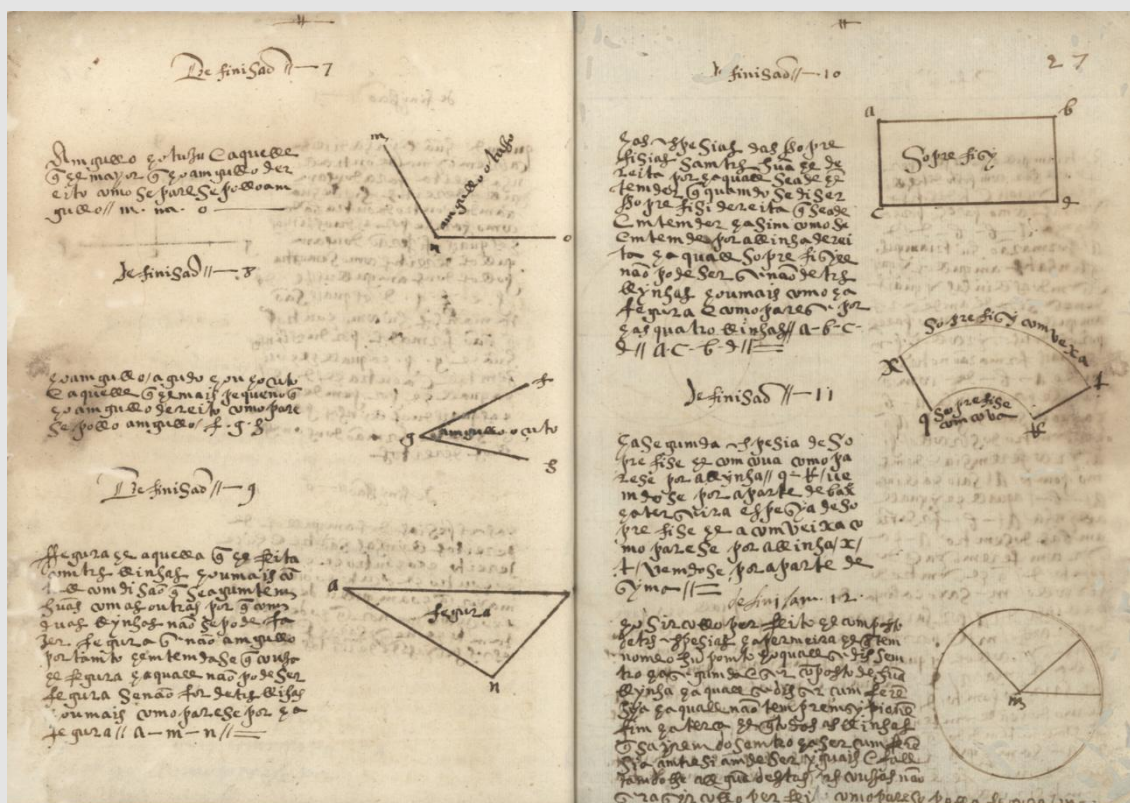 De finisaõ // — 7
Amgullo hotuzu he aquelle
q̃ he mayor q̃ ho amgullo der
eito como se pare se pollo am
gullo // m. na. o —
m
amgullo otuzo
n
o
de finisaõ // — 8
ho amgullo / agudo hou hocuto
he aquelle q̃ he mais pequeno q̃
ho amgullo dereito como pare
se pollo amgullo / f. g. h.
f
g
amgullo ocuto
h
De finisaõ // — 9
ffegura he aquella q̃ he feita
com tres llinhas hou mais cõ
tall comdisaõ q̃ se aguntem
huas com as outras por q̃ com
duas llynhas não se pode fa
zer fegura senão amgullo
por tamto hemtemdase q̃ cousa
he fegura ha quall não pode ser
fegura se não for de tres llihas
hou mais como parese por ha
ffegura // a — m — n //
a
fegura
n
27
de finisaõ // — 10
has espesias das sopre
fisias sam tres hũa he de
reita por ha quall se a de hẽ
temder q̃ quamdo se diser
sopre fisi dereita q̃ se a de
emtemder ha sim como se
emtemde por a llinha derei
ta ha quall sopre fisye
não pode ser se não de tres
llynhas hou mais como ha
fegura he como parese por
has quatro llinhas // a - b - c -
d // a - c - b - d //
a
b
Sopre fisy
c
d
de finisaõ // — 11
ha segumda espesia de so
pre fise he comcoua como pa
rese por a llynha // q — k / ue
mdose por a parte de baix
ha terseira espesia de so
pre fise he a comveixa co
mo parese por a llinha / x /
t / vemdose por a parte de
syma //
sopre fisy comvexa
x
t
sopre fise
comcova
q
k
de finisam. 12.
ho sircollo per feito he composto
de tres espesias ha permeira he q̃ tem
no meo hũ pomto ho quall se dis sem
tro ha segumda he ser composto de hũa
llynha ha quall se dis sir cum ferẽ
sya ha quall não tem premsypio nẽ
fim ha tersa he q̃ todas as llinhas
q̃ sayrem do semtro ha ser cum ferẽ
sia
m